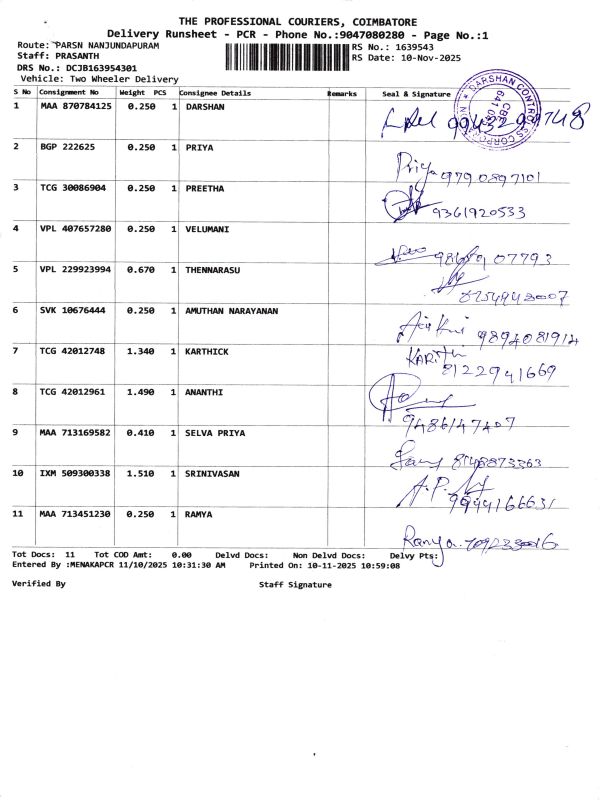 THE PROFESSIONAL COURIERS, COIMBATORE
Delivery Runsheet - PCR - Phone No.:9047080280 - Page No.:1
Route: PARSN NANJUNDAPURAM
RS No.: 1639543
Staff: PRASANTH
RS Date: 10-Nov-2025
DRS No.: DCJB163954301
Vehicle: Two Wheeler Delivery
S No Consignment No Weight PCS Consignee Details Remarks Seal & Signature
DARSHAN CONTROLS CORPORATION
CBE
1 MAA 870784125 0.250 1 DARSHAN
2 BGP 222625 0.250 1 PRIYA
Priya 9790897101
3 TCG 30086904 0.250 1 PREETHA
9361920533
4 VPL 407657280 0.250 1 VELUMANI
07793
5 VPL 229923994 0.670 1 THENNARASU
6 SVK 10676444 0.250 1 AMUTHAN NARAYANAN
9894081914
7 TCG 42012748 1.340 1 KARTHICK
8122941669
8 TCG 42012961 1.490 1 ANANTHI
9486147407
9 MAA 713169582 0.410 1 SELVA PRIYA
8148873363
10 IXM 509300338 1.510 1 SRINIVASAN
A.P.
11 MAA 713451230 0.250 1 RAMYA
Ramya
Tot Docs: 11 Tot COD Amt: 0.00 Delvd Docs: Non Delvd Docs: Delvy Pts:
Entered By :MENAKAPCR 11/10/2025 10:31:30 AM Printed On: 10-11-2025 10:59:08
Verified By Staff Signature